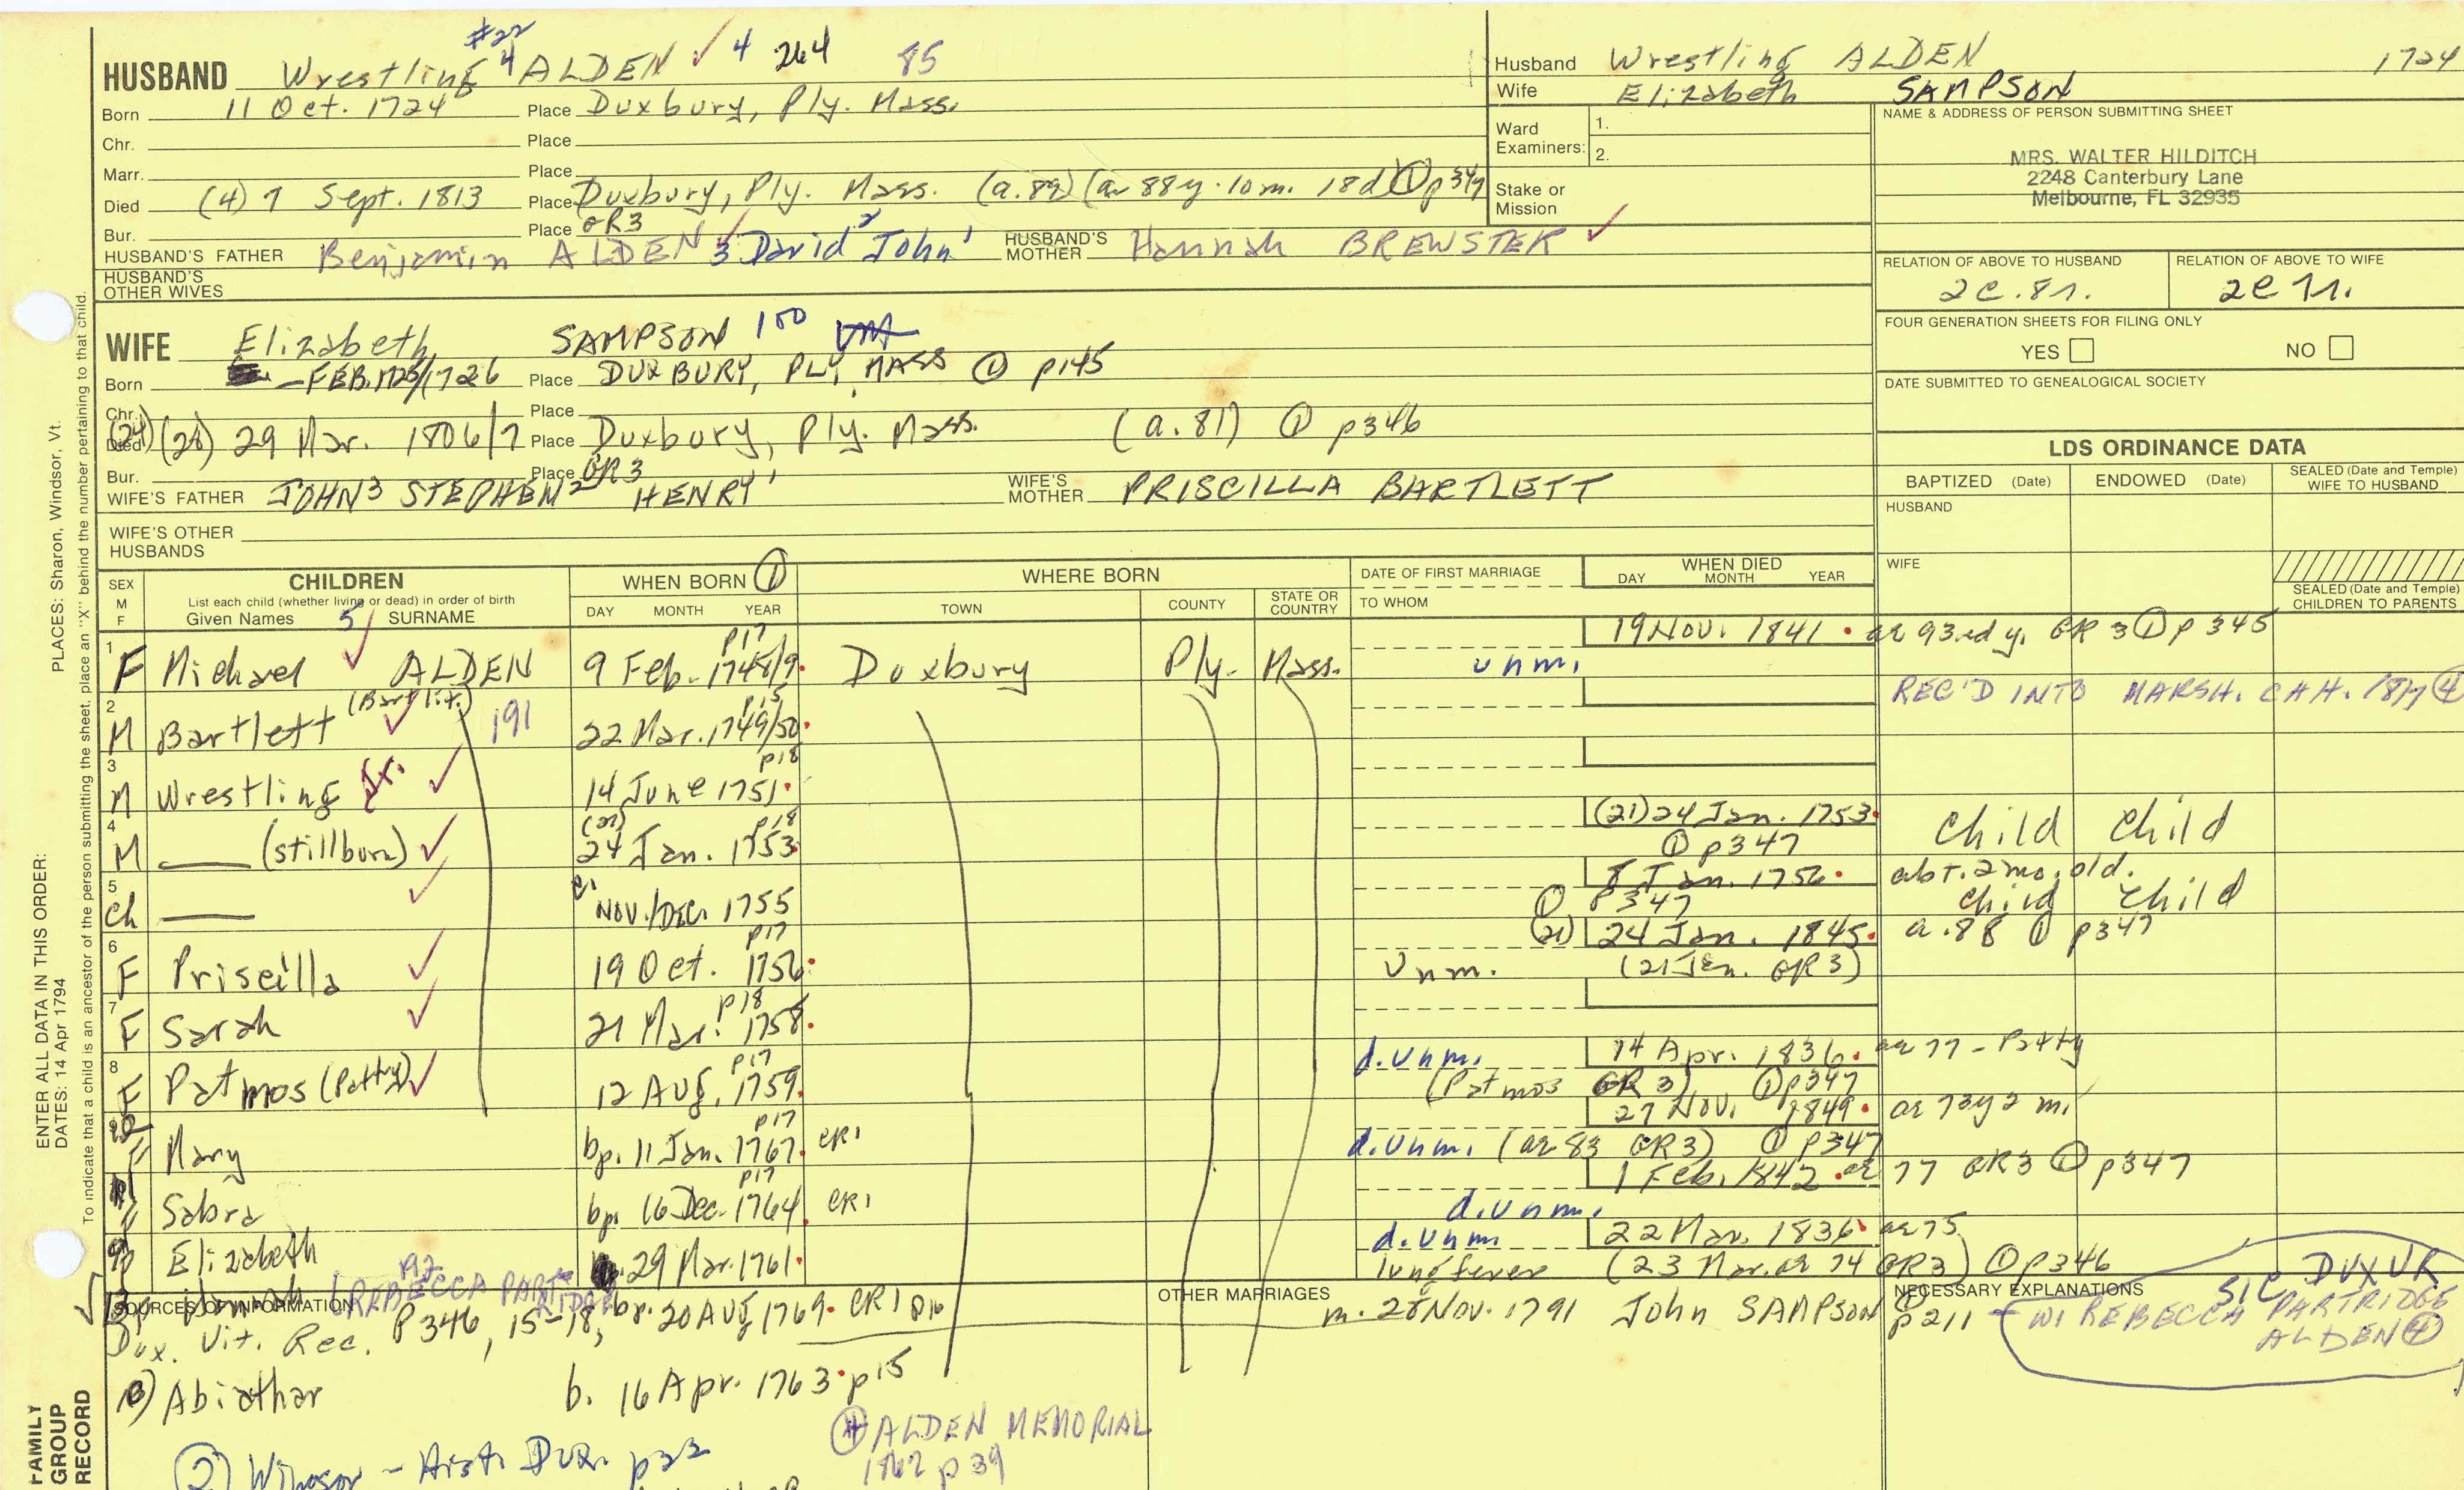 #22
HUSBAND Wrestling 4 ALDEN ✓ 4 264 85
Born 11 Oct. 1724 Place Duxbury, Ply. Mass.
Chr. Place
Marr. Place
Died (4) 7 Sept. 1813 Place Duxbury, Ply. Mass. (a. 89) (ae 88y. 10m. 18d) ① p347
Bur. Place GR3
HUSBAND'S FATHER Benjamin ALDEN 3 David 2 John 1 HUSBAND'S MOTHER Hannah BREWSTER ✓
HUSBAND'S OTHER WIVES
Husband Wrestling ALDEN 1724
Wife Elizabeth SAMPSON
Ward Examiners: 1.
2.
Stake or Mission
NAME & ADDRESS OF PERSON SUBMITTING SHEET
MRS. WALTER HILDITCH
2248 Canterbury Lane
Melbourne, FL 32935
RELATION OF ABOVE TO HUSBAND RELATION OF ABOVE TO WIFE
2c. 8r. 2c 7r.
FOUR GENERATION SHEETS FOR FILING ONLY
YES NO
DATE SUBMITTED TO GENEALOGICAL SOCIETY
WIFE Elizabeth SAMPSON 100
Born - FEB. 1725/1726 Place DUXBURY, PLY, MASS ① p145
Chr. Place
Died (24) (28) 29 Mar. 1806/7 Place Duxbury, Ply. Mass. (a. 81) ① p346
Bur. Place GR3
WIFE'S FATHER JOHN 3 STEPHEN 2 HENRY 1 WIFE'S MOTHER PRISCILLA BARTLETT
WIFE'S OTHER HUSBANDS
LDS ORDINANCE DATA
BAPTIZED (Date) ENDOWED (Date) SEALED (Date and Temple) WIFE TO HUSBAND
HUSBAND
WIFE
SEALED (Date and Temple) CHILDREN TO PARENTS
SEX M F CHILDREN WHEN BORN ① WHERE BORN DATE OF FIRST MARRIAGE WHEN DIED
List each child (whether living or dead) in order of birth
Given Names 5 SURNAME DAY MONTH YEAR TOWN COUNTY STATE OR COUNTRY TO WHOM DAY MONTH YEAR
p17 19 Nov. 1841 ae 93rd y. GR 3 ① p 345
1 F Michael ✓ ALDEN 9 Feb. 1748/9 Duxbury Ply. Mass. unm.
(Bartlit) p15 REC'D INTO MARSH. CHH. ④
2 M Bartlett ✓ 191 22 Mar. 1749/50
p18
3 M Wrestling Jr. ✓ 14 June 1751
(21) p18 (21) 24 Jan. 1753 Child Child
4 M (stillborn) ✓ 24 Jan. 1753 ① p347
8 Jan. 1756 abt. 2 mo. old.
5 Ch ✓ Nov./Dec. 1755 ① p347 Child Child
p17 (21) 24 Jan. 1845 a. 88 ① p347
6 F Priscilla ✓ 19 Oct. 1756 Unm. (21 Jan. GR3)
p18
7 F Sarah ✓ 21 Mar. 1758
p17 d. unm. 14 Apr. 1836 ae 77 - Patty
8 F Patmos (Patty) ✓ 12 Aug. 1759 (Patmos GR 3) ① p347
p17 27 Nov. 1849 ae 73y 2 m.
Mary bp. 11 Jan. 1767 CR1 d. unm. (ae 83 GR3) ① p347
p17 1 Feb. 1842 ae 77 GR3 ① p347
Sabra bp. 16 Dec. 1764 CR1 d. unm.
d. unm. 22 Mar. 1836 ae 75
Elizabeth 29 Mar. 1761 lung fever (23 Mar. ae 74 GR3) ① p346
SOURCES OF INFORMATION (REBECCA PARTRIDGE bp. 20 Aug 1769 CR1 p16 OTHER MARRIAGES m. 28 Nov. 1791 John SAMPSON ① p211 NECESSARY EXPLANATIONS
SIC DUXVR
W/ REBECCA PARTRIDGE
ALDEN ④
Dux. Vit. Rec. p346, 15-18,
Abiathar b. 16 Apr. 1763 p15
④ ALDEN MEMORIAL
1867 p 39
② Winsor - Hist. Dux. p22
ENTER ALL DATA IN THIS ORDER:
DATES: 14 Apr 1794
PLACES: Sharon, Windsor, Vt.
To indicate that a child is an ancestor of the person submitting the sheet, place an "X" behind the number pertaining to that child.
FAMILY GROUP RECORD